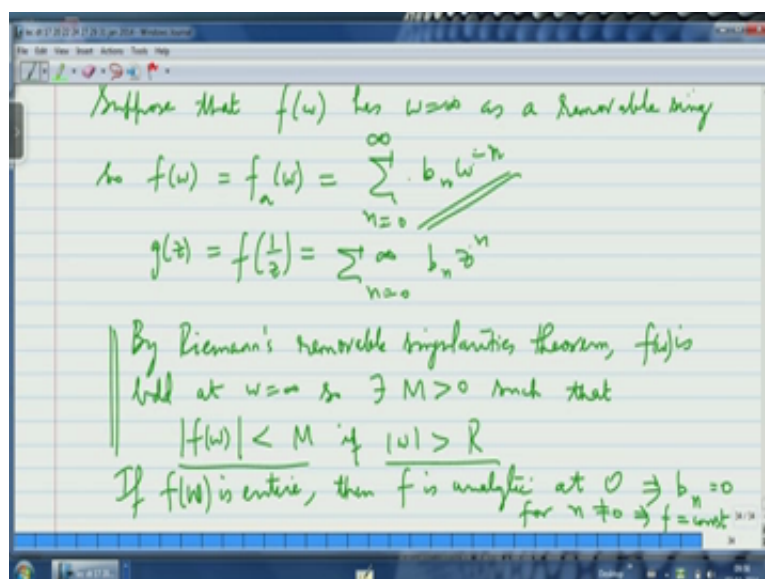 File Edit View Insert Actions Tools Help
Suppose that f(w) has w=∞ as a removable sing
so f(w) = f_a(w) = ∑_{n=0}^{∞} b_n w^{-n}
g(z) = f(1/z) = ∑_{n=0}^{∞} b_n z^n
By Riemann's removable singularities theorem, f(w) is
bdd at w=∞ so ∃ M>0 such that
|f(w)| < M if |w| > R
If f(w) is entire, then f is analytic at 0 ⇒ b_n = 0
for n ≠ 0 ⇒ f = const